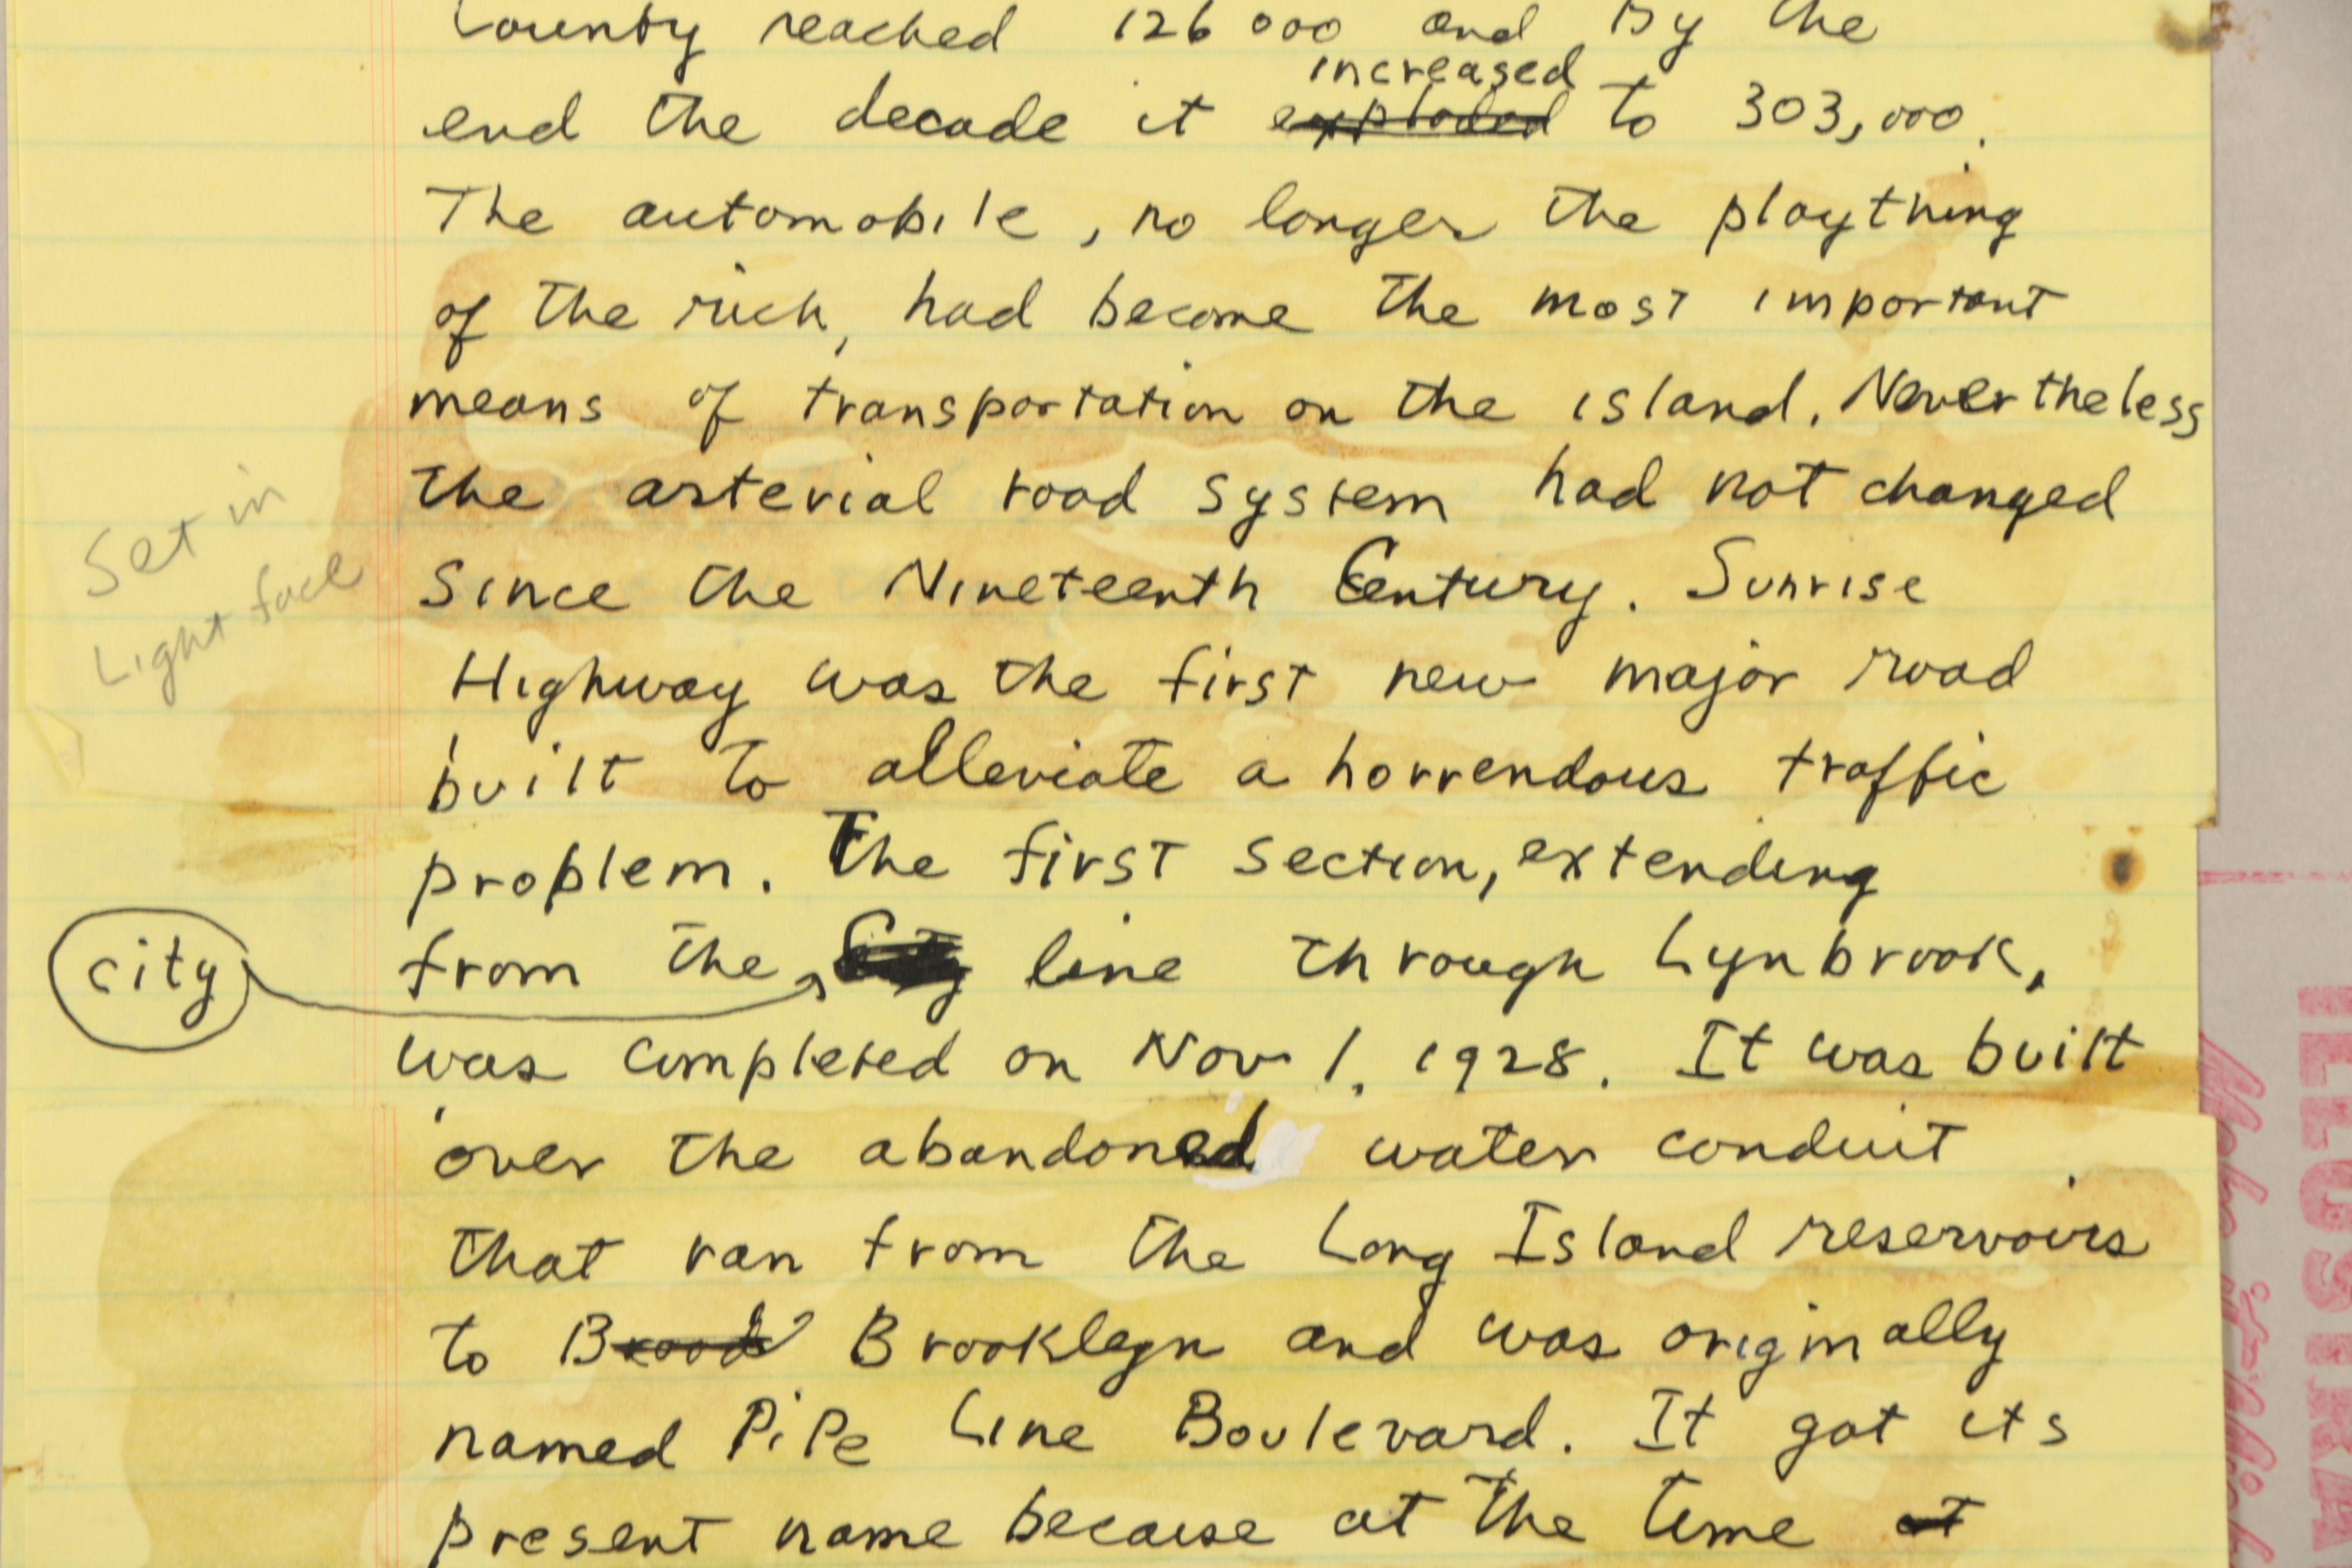 County reached 126 000 and By the
increased
end the decade it exploded to 303,000.
The automobile, no longer the plaything
of the rich, had become the most important
means of transportation on the island. Nevertheless
the arterial road system had not changed
Set in
Light face
since the Nineteenth Century. Sunrise
Highway was the first new major road
built to alleviate a horrendous traffic
problem. The first section, extending
city
from the City line through Lynbrook,
was completed on Nov 1, 1928. It was built
over the abandoned water conduit
that ran from the Long Island reservoirs
to Brook Brooklyn and was originally
named PiPe Line Boulevard. It got its
present name because at the time at